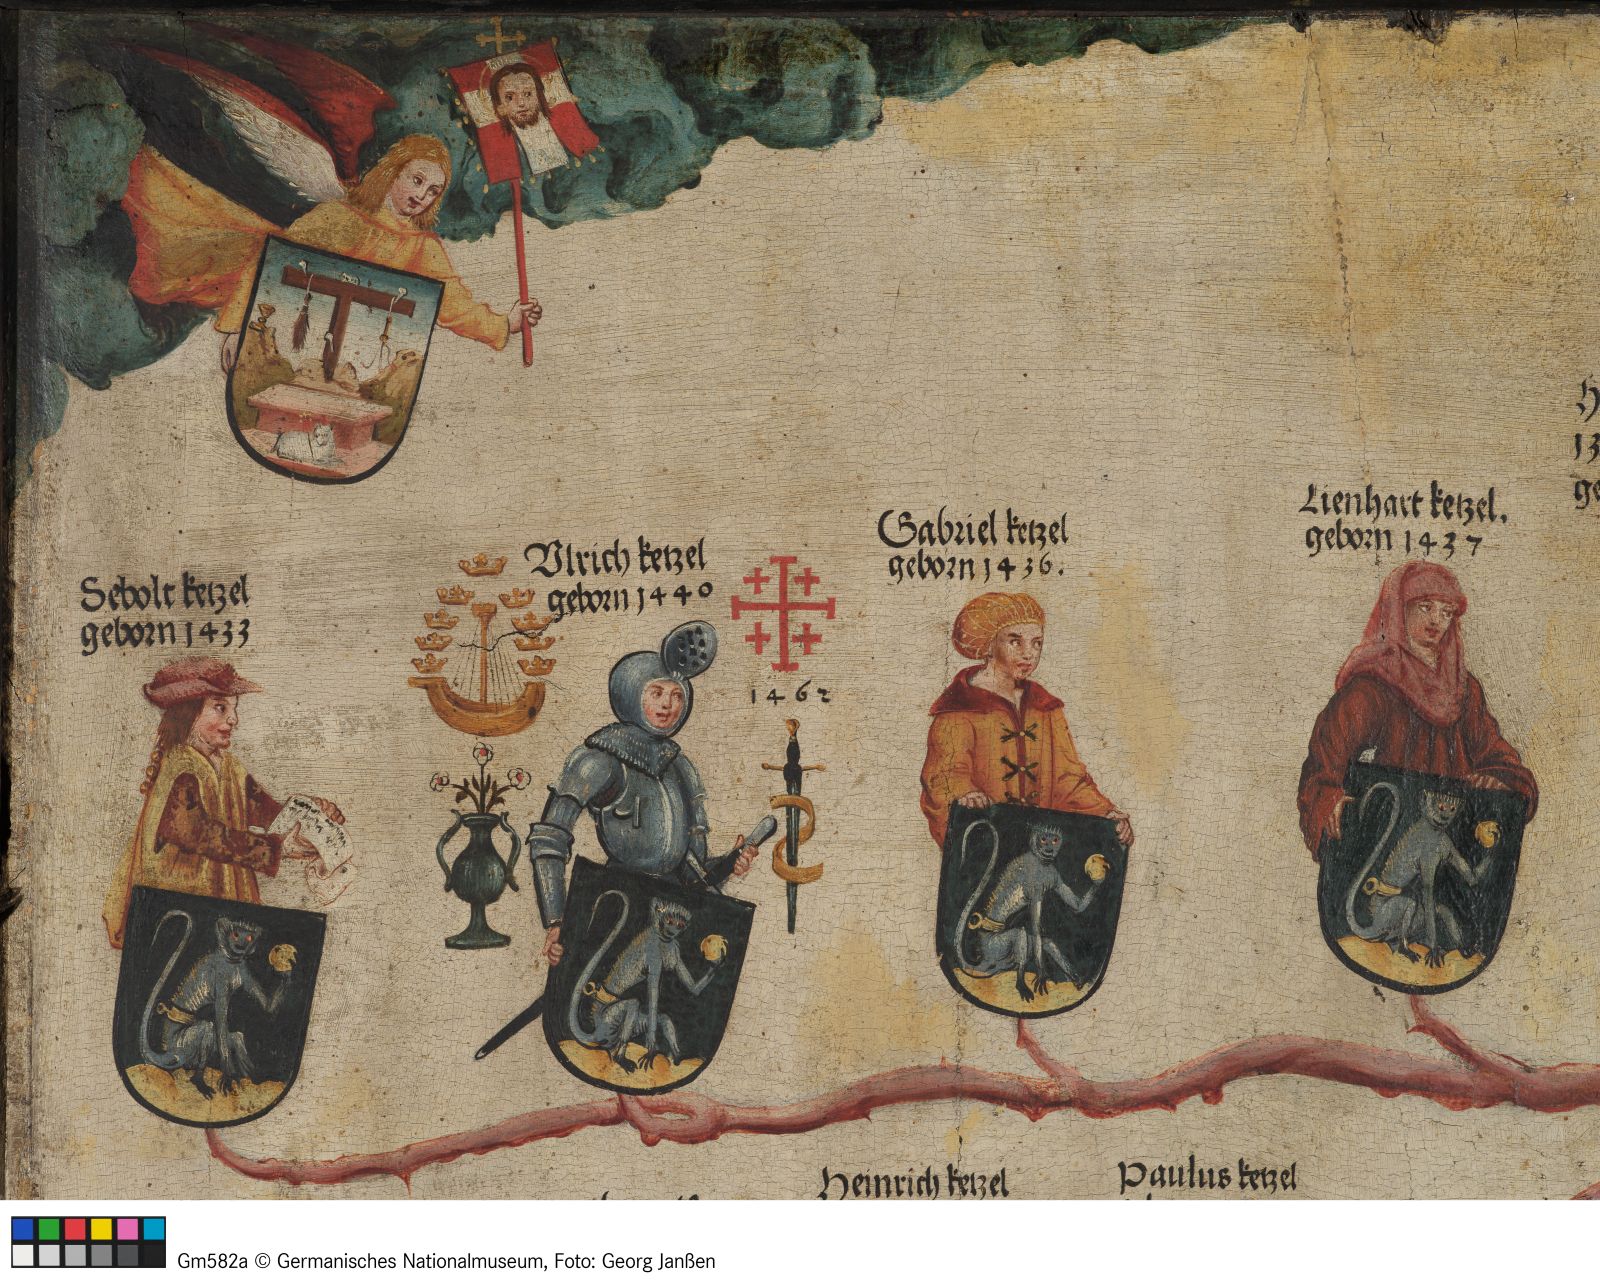 Sebolt ketzel
geborn 1433
Vlrich ketzel
geborn 1440
1462
Gabriel ketzel
geborn 1436.
Lienhart ketzel.
geborn 1437
H
13
ge
Heinrich ketzel
Paulus ketzel
Gm582a © Germanisches Nationalmuseum, Foto: Georg Janßen